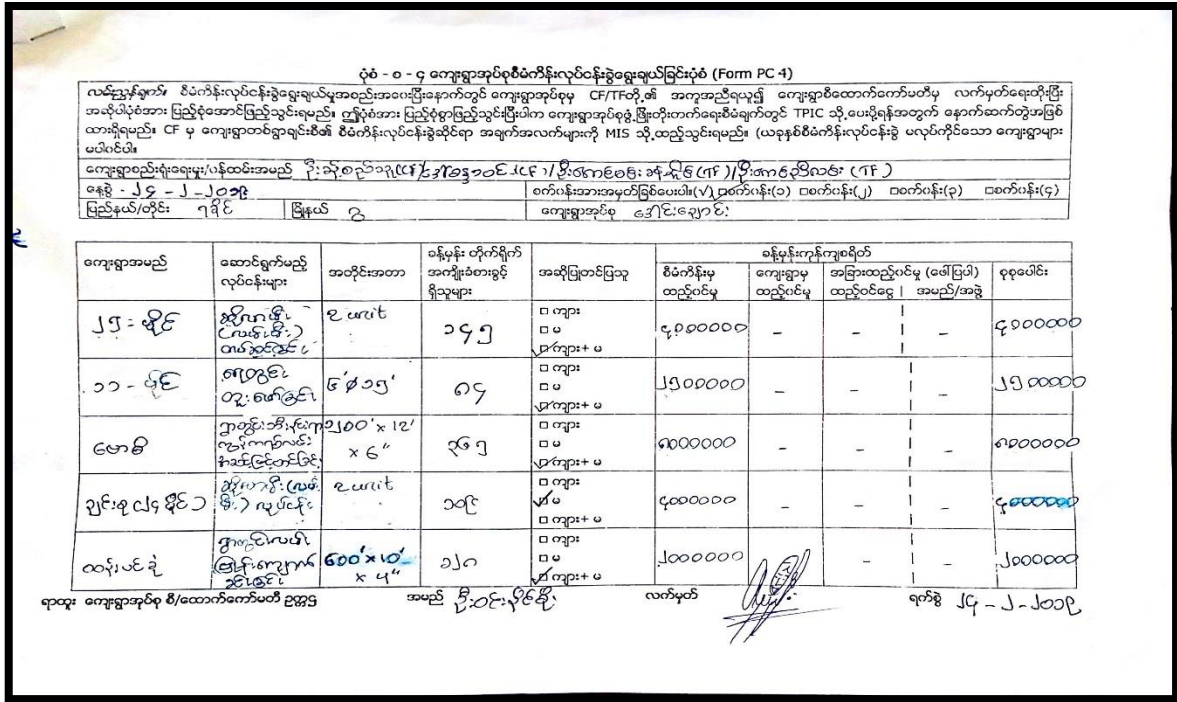 ပုံစံ - ၁ - ၄ ကျေးရွာအုပ်စုစီမံကိန်းလုပ်ငန်းခွဲရွေးချယ်ခြင်းပုံစံ (Form PC 4)
လမ်းညွှန်ချက်။ စီမံကိန်းလုပ်ငန်းခွဲရွေးချယ်မှုအစည်းအဝေးပြီးနောက်တွင် ကျေးရွာအုပ်စုမှ CF/TFတို့၏ အကူအညီရယူ၍ ကျေးရွာစီထောက်ကော်မတီမှ လက်မှတ်ရေးထိုးပြီး
အဆိုပါပုံစံအား ပြည့်စုံအောင်ဖြည့်သွင်းရမည်။ ဤပုံစံအား ပြည့်စုံစွာဖြည့်သွင်းပြီးပါက ကျေးရွာအုပ်စုဖွံ့ဖြိုးတိုးတက်ရေးစီမံချက်တွင် TPIC သို့ပေးပို့ရန်အတွက် နောက်ဆက်တွဲအဖြစ်
ထားရှိရမည်။ CF မှ ကျေးရွာတစ်ရွာချင်းစီ၏ စီမံကိန်းလုပ်ငန်းခွဲဆိုင်ရာ အချက်အလက်များကို MIS သို့ထည့်သွင်းရမည်။ (ယခုနှစ်စီမံကိန်းလုပ်ငန်းခွဲ မလုပ်ကိုင်သော ကျေးရွာများ
မပါဝင်ပါ။
ကျေးရွာစည်းရုံးရေးမှူး/ဝန်ထမ်းအမည် (CF) (CF) (TF) (TF)
နေ့စွဲ - ၂၄ - ၂ - ၂၀၁၉ စက်ဝန်းအားအမှတ်ခြစ်ပေးပါ။(√) □စက်ဝန်း(၁) □စက်ဝန်း(၂) □စက်ဝန်း(၃) □စက်ဝန်း(၄)
ပြည်နယ်/တိုင်း ရခိုင် မြို့နယ် ကျေးရွာအုပ်စု ဒေါင်းချောင်း
ကျေးရွာအမည် ဆောင်ရွက်မည့် လုပ်ငန်းများ အတိုင်းအတာ ခန့်မှန်း တိုက်ရိုက် အကျိုးခံစားခွင့် ရှိသူများ အဆိုပြုတင်ပြသူ ခန့်မှန်းကုန်ကျစရိတ်
စီမံကိန်းမှ ထည့်ဝင်မှု ကျေးရွာမှ ထည့်ဝင်မှု အခြားထည့်ဝင်မှု (ဖော်ပြပါ) ထည့်ဝင်ငွေ အမည်/အဖွဲ့ စုစုပေါင်း
၂၅ - မိုင် ဆိုလာမီး (လမ်းမီး) တပ်ဆင်ခြင်း 2 unit ၁၄၅ □ ကျား □ မ ☑ ကျား+ မ ၄၀၀၀၀၀၀ - - - ၄၀၀၀၀၀၀
၁၁ - မိုင် ရေတွင်း တူးဖော်ခြင်း ၆'Ø၁၅' ၈၄ □ ကျား □ မ ☑ ကျား+ မ ၂၅၀၀၀၀၀ - - - ၂၅၀၀၀၀၀
ဗောဓိ 2100' x 12' x 6" ၃၆၅ □ ကျား □ မ ☑ ကျား+ မ ၈၀၀၀၀၀၀ - - - ၈၀၀၀၀၀၀
ချင်းစု (၂၄ မိုင်) ဆိုလာမီး (လမ်းမီး) လုပ်ငန်း 2 unit ၁၀၉ □ ကျား ☑ မ □ ကျား+ မ ၄၀၀၀၀၀၀ - - - ၄၀၀၀၀၀၀
ထန်းပင်ခုံ ရွာတွင်းလမ်း ကျောက်ခင်းခြင်း 600' x 10' x 4" ၁၂၈ □ ကျား □ မ ☑ ကျား+ မ ၂၀၀၀၀၀၀ - - - ၂၀၀၀၀၀၀
ရာထူး ကျေးရွာအုပ်စု စီ/ထောက်ကော်မတီ ဥက္ကဋ္ဌ အမည် ဦးဝင်းနိုင်စိုး လက်မှတ် ရက်စွဲ ၂၄ - ၂ - ၂၀၁၉